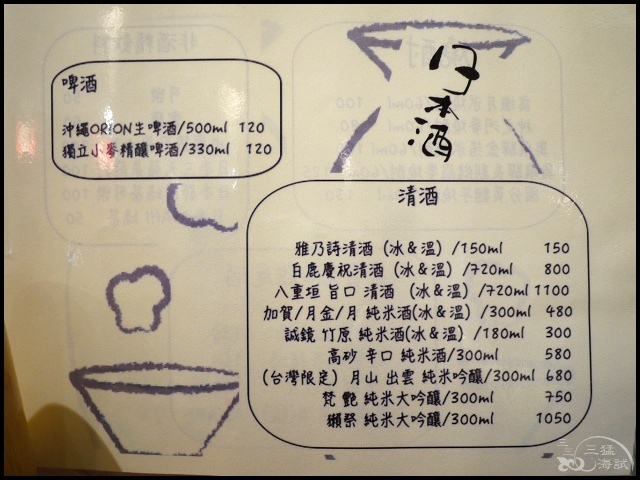 日本酒
啤酒
沖繩ORION生啤酒/500ml 120
獨立小麥精釀啤酒/330ml 120
清酒
雅乃詩清酒 (冰&溫) /150ml 150
白鹿慶祝清酒 (冰&溫) /720ml 800
八重垣 旨口 清酒 (冰&溫) /720ml 1100
加賀/月金/月 純米酒(冰&溫) /300ml 480
誠鏡 竹原 純米酒(冰&溫) /180ml 300
高砂 辛口 純米酒/300ml 580
(台灣限定) 月山 出雲 純米吟釀/300ml 680
梵 艷 純米大吟釀/300ml 750
獺祭 純米大吟釀/300ml 1050
三猛
海試